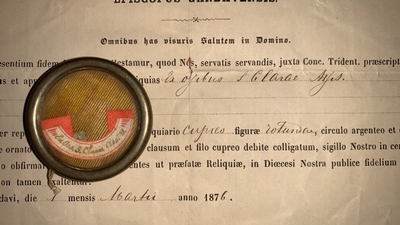 EPISCOPUS GENEVENSIS.
Omnibus has visuris Salutem in Domino.
testamur, quod Nos, servatis servandis, juxta Conc. Trident. præscript
us et appr iquias ex ossibus S Clarae Ass.
quiario cupreo figuræ rotundae, circulo argenteo et
clausum et filo cupreo debite colligatum, sigillo Nostro in ce
o obfirmar ntes ut præfatæ Reliquiæ, in Diœcesi Nostra publice fidelium
on tamen exaltentur.
davi, die mensis Martii anno 1876.